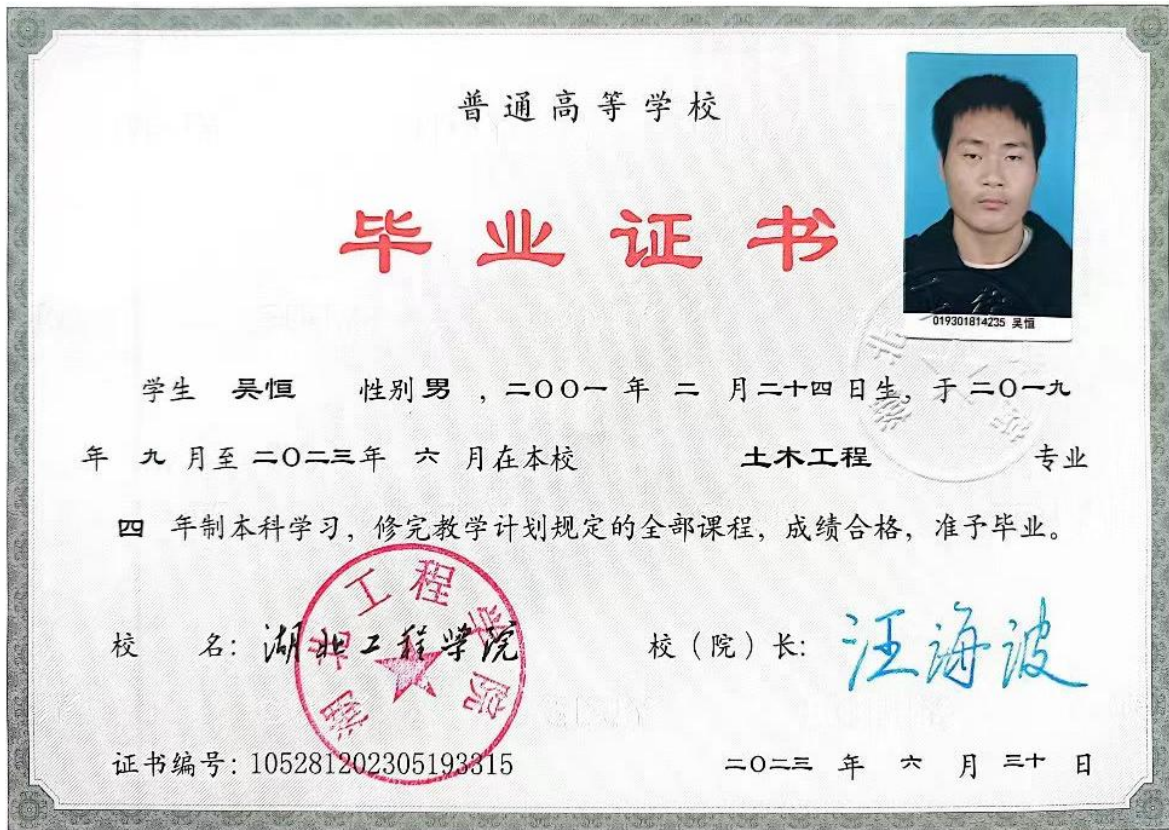 普通高等学校
毕业证书
019301814235 吴恒
学生 吴恒 性别 男 ，二〇〇一 年 二 月二十四 日生，于 二〇一九
年 九 月至 二〇二三年 六 月在本校 土木工程 专业
四 年制本科学习，修完教学计划规定的全部课程，成绩合格，准予毕业。
校 名：湖北工程学院
湖北工程学院
校（院）长：汪海波
证书编号：105281202305193315
二〇二三 年 六 月 三十 日